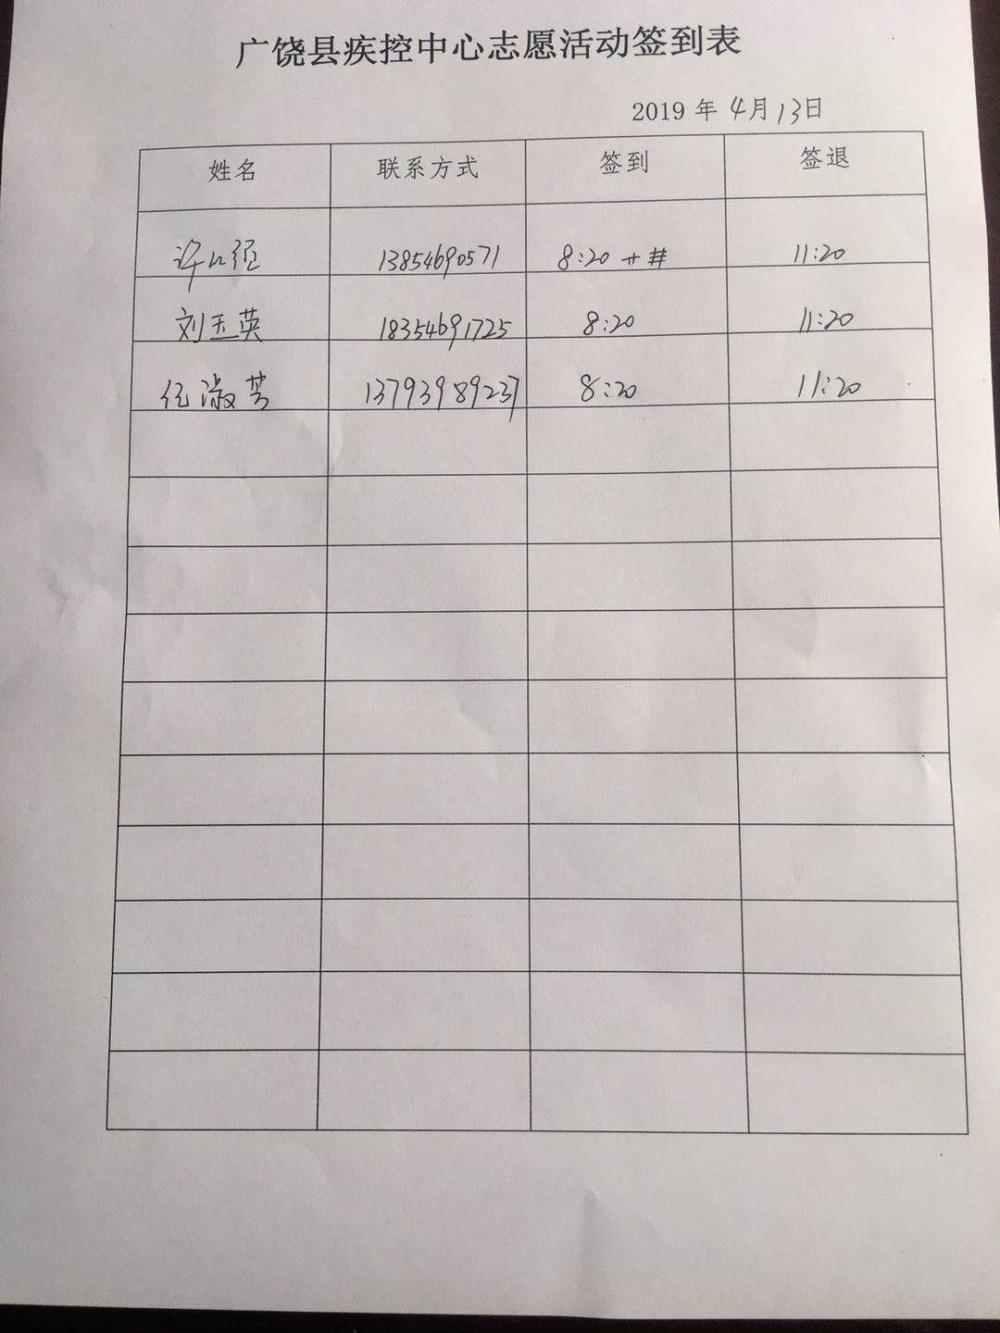 广饶县疾控中心志愿活动签到表
2019 年 4月13日
姓名 联系方式 签到 签退
许 13854690571 8:20 11:20
刘玉英 18354691725 8:20 11:20
淑芳 13793989237 8:20 11:20